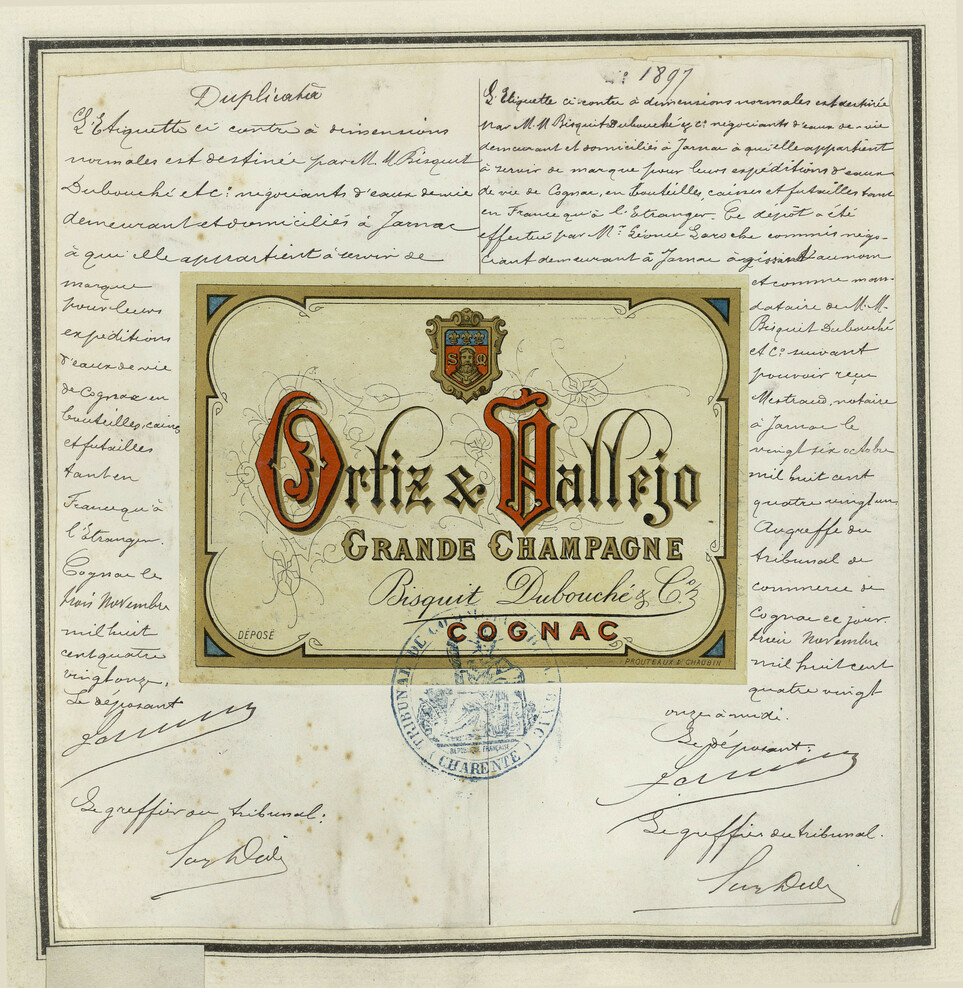 Duplicata
L'Etiquette ci contre à dimensions
normales est destinée par M. M. Bisquit
Dubouché et Co. negociants d'eaux de vie
demeurant et domiciliés à Jarnac
à qui elle appartient à servir de
marque
pour leurs
expéditions
d'eaux de vie
de Cognac en
bouteilles, caisses
et futailles
tant en
France qu'à
l'Etranger.
Cognac le
trois Novembre
mil huit
cent quatre
vingt onze.
Le déposant
Le greffier du tribunal:
1897
L'Etiquette ci contre à dimensions normales est destinée
par M. M. Bisquit Dubouché & Co. négociants d'eaux de vie
demeurant et domiciliés à Jarnac à qui elle appartient
à servir de marque pour leurs expéditions d'eaux
de vie de Cognac, en bouteilles, caisses et futailles tant
en France qu'à l'Etranger. Ce dépôt a été
effectué par Mr. Léonce Laroche commis négo-
ciant demeurant à Jarnac agissant au nom
et comme man-
dataire de M. M.
Bisquit Dubouché
et Co. suivant
pouvoir reçu
Mestraud, notaire
à Jarnac le
vingt six octobre
mil huit cent
quatre vingt un
Au greffe du
tribunal de
commerce de
Cognac ce jour
trois Novembre
mil huit cent
quatre vingt
onze à midi.
Le déposant:
Le greffier du tribunal.
S Q
Ortiz & Vallejo
GRANDE CHAMPAGNE
Bisquit Dubouché & Co.
COGNAC
DÉPOSÉ
PROUTEAUX & CHAUBIN
TRIBUNAL DE COMMERCE
REPUBLIQUE FRANÇAISE
(CHARENTE)